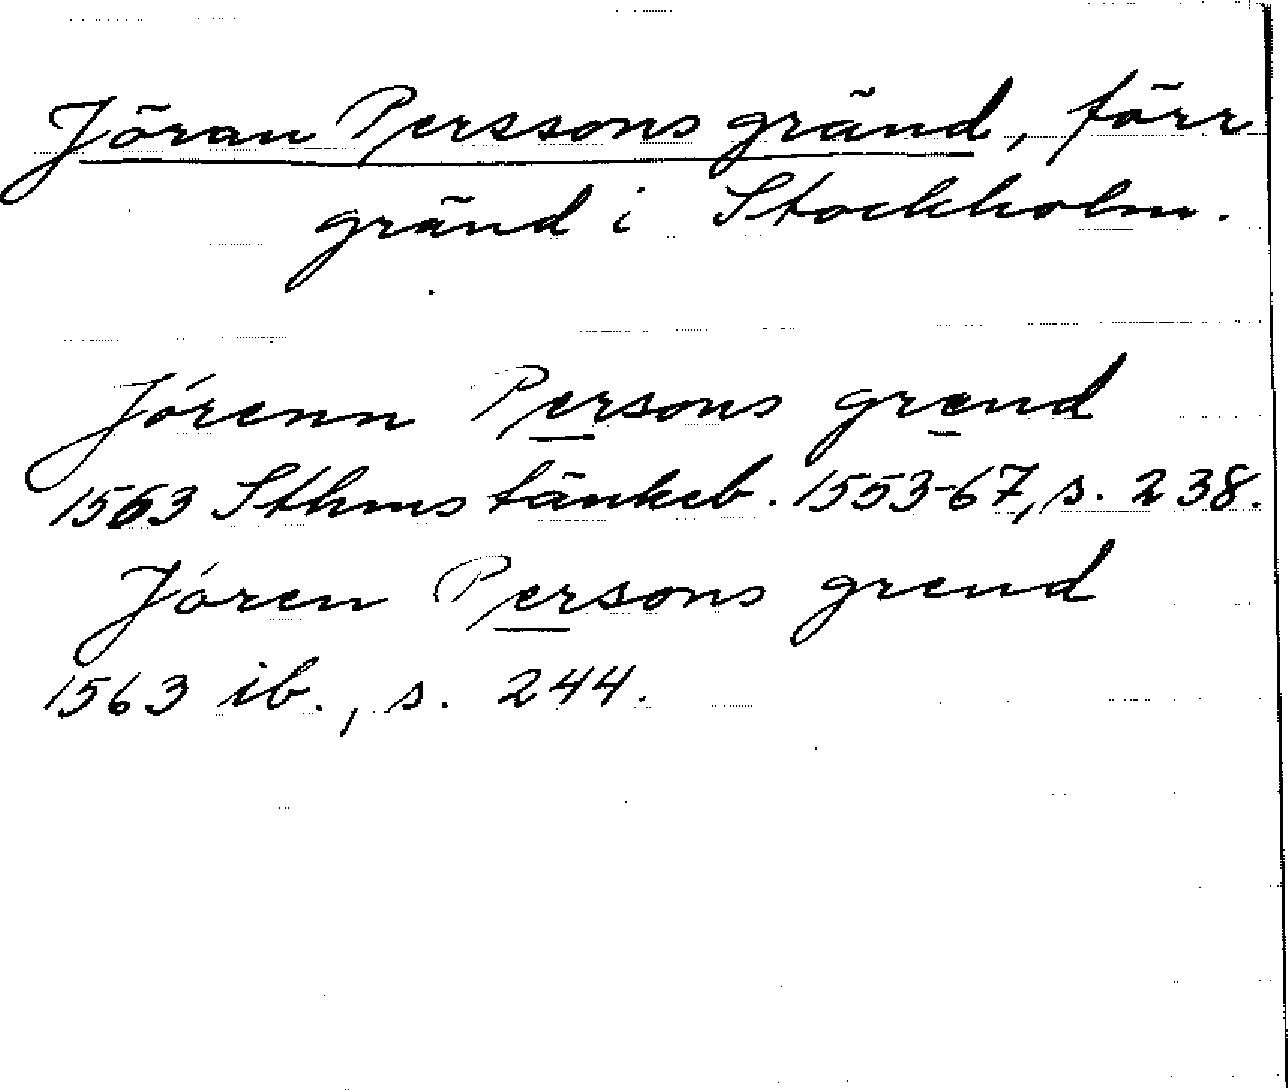 Jöran Perssons gränd, förr
gränd i Stockholm.
Jórenn Persons grend
1563 Sthms tänkeb. 1553-67, s. 238.
Jóren Persons grend
1563 ib., s. 244.